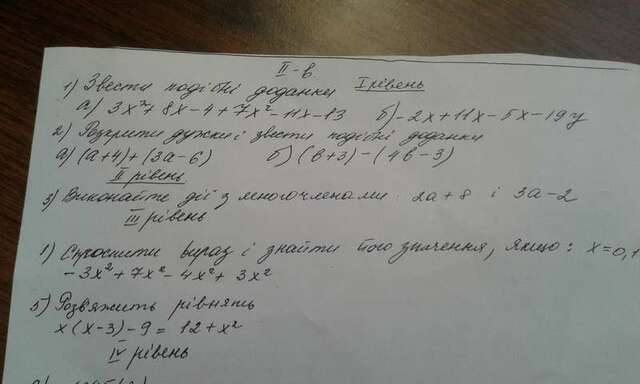 II-в.
1) Звести подібні доданки I рівень
а) 3x²+8x-4+7x²-11x-13 б) -2x+11x-5x-19y
2) Розкрити дужки і звести подібні доданки
а) (a+4)+(3a-6) б) (в+3)-(4в-3)
II рівень
3) Виконайте дії з многочленами: 2a+8 і 3a-2
III рівень
1) Спростити вираз і знайти його значення, якщо: x=0,1
-3x²+7x²-4x²+3x²
5) Розвяжить рівнять
x(x-3)-9=12+x²
IV рівень